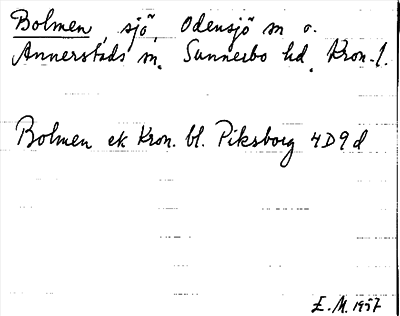 Bolmen, sjö, Odensjö sn o.
Annerstads sn. Sunnerbo hd. Kron. l.
Bolmen ek Kron. bl. Piksborg 4D9d
E.M. 1957